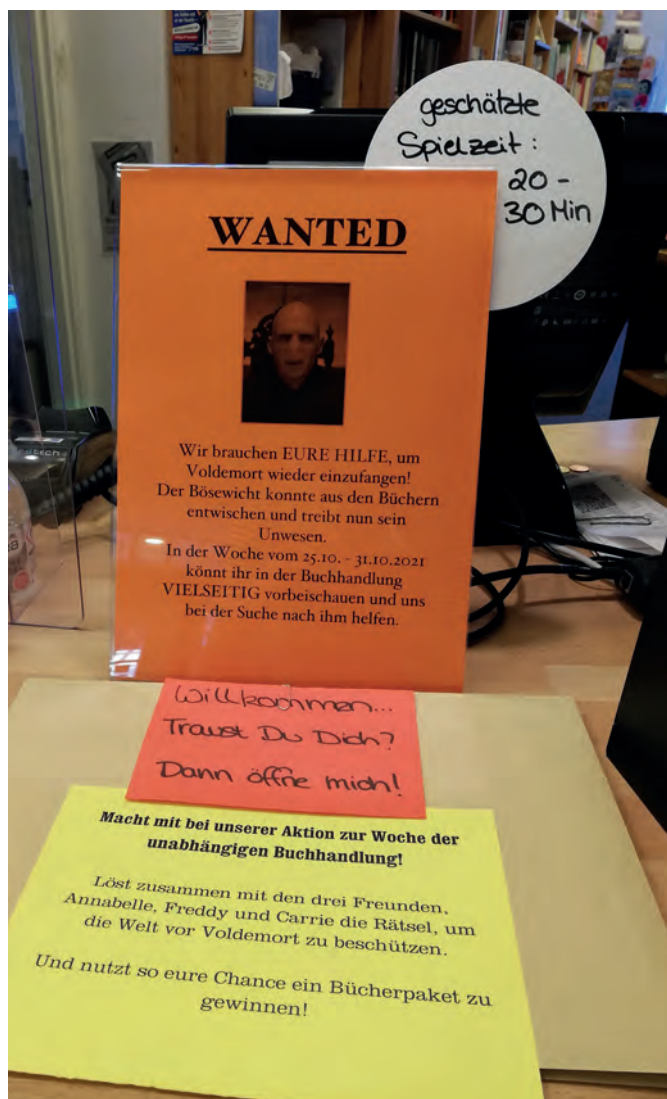 geschätzte
Spielzeit:
20 -
30 Min
WANTED
Wir brauchen EURE HILFE, um
Voldemort wieder einzufangen!
Der Bösewicht konnte aus den Büchern
entwischen und treibt nun sein
Unwesen.
In der Woche vom 25.10. - 31.10.2021
könnt ihr in der Buchhandlung
VIELSEITIG vorbeischauen und uns
bei der Suche nach ihm helfen.
Willkommen...
Traust Du Dich?
Dann öffne mich!
Macht mit bei unserer Aktion zur Woche der
unabhängigen Buchhandlung!
Löst zusammen mit den drei Freunden,
Annabelle, Freddy und Carrie die Rätsel, um
die Welt vor Voldemort zu beschützen.
Und nutzt so eure Chance ein Bücherpaket zu
gewinnen!